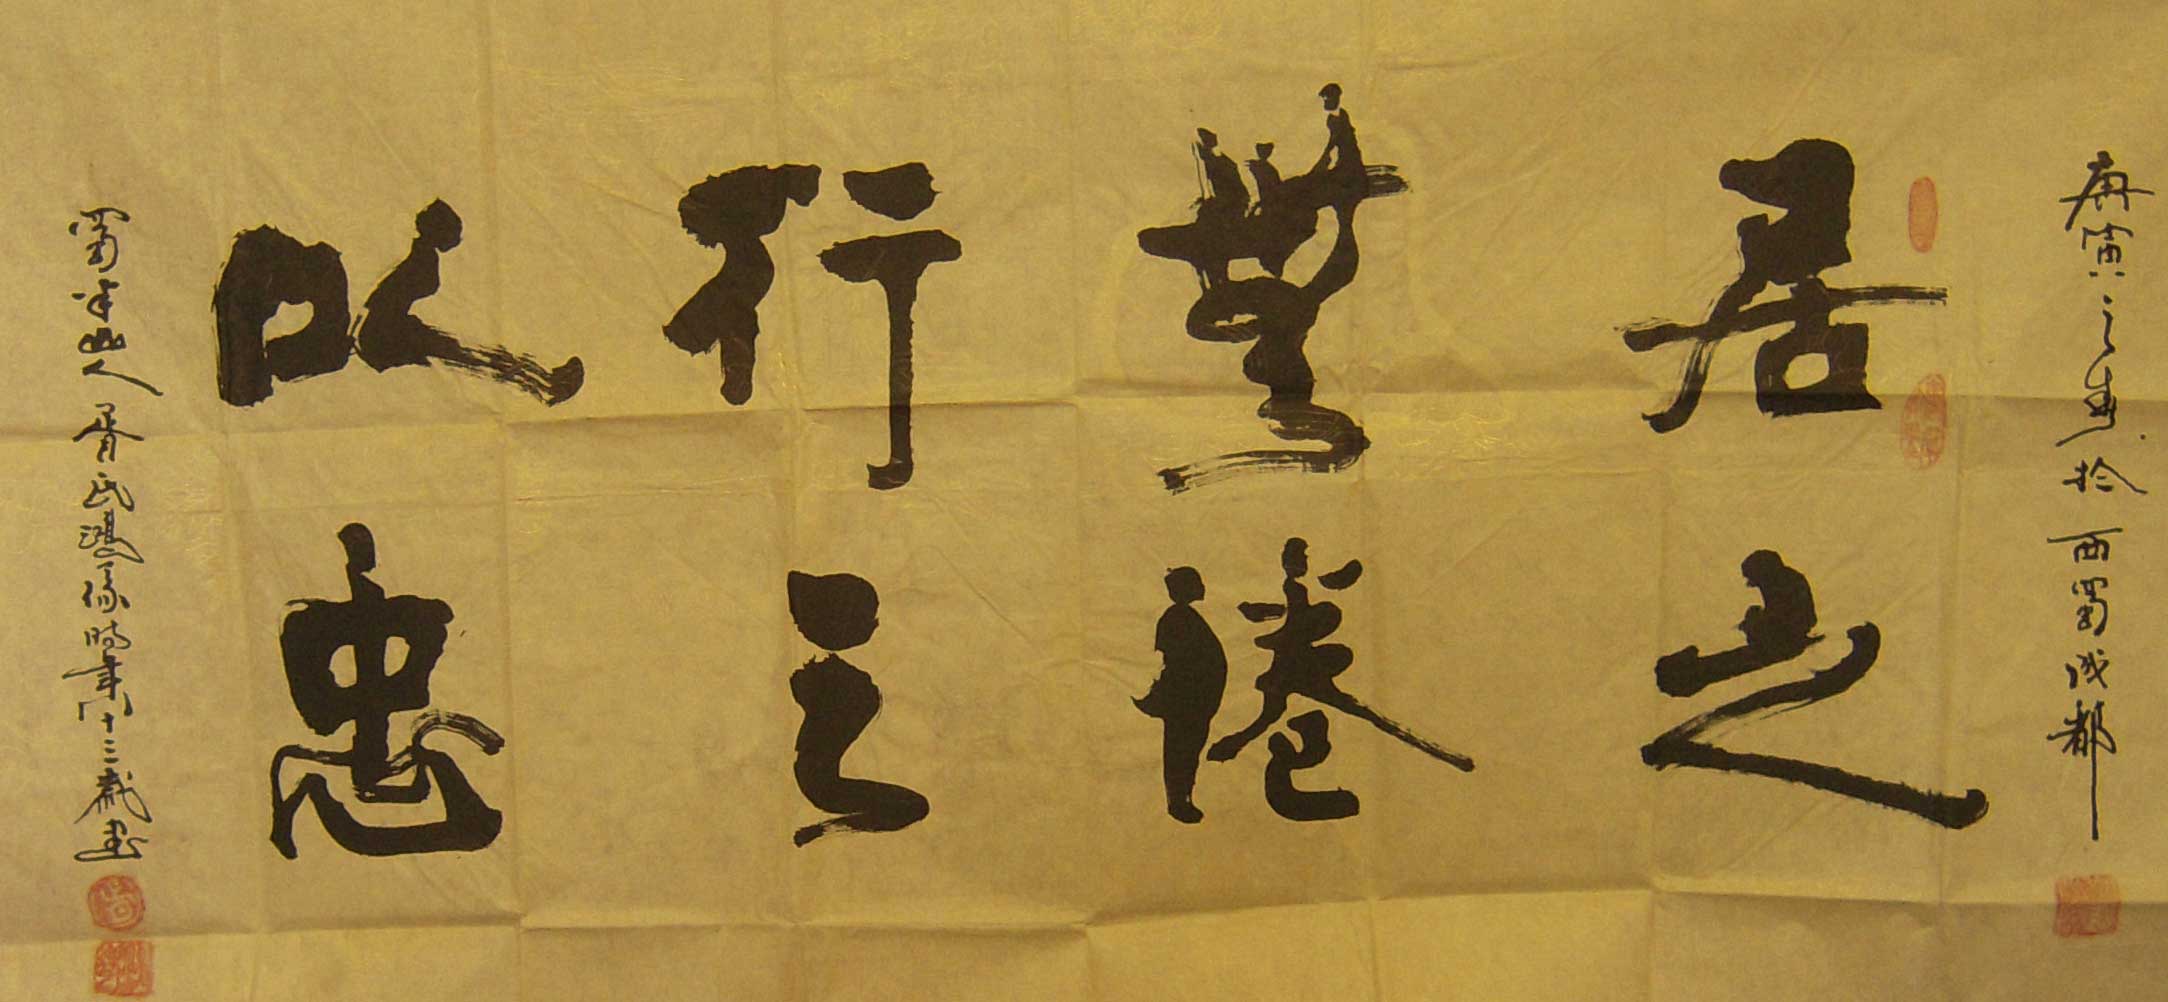 庚寅之春於西蜀成都
居之
無倦
行之
以忠
蜀半山人胥氏鴻緣時年八十三歲書